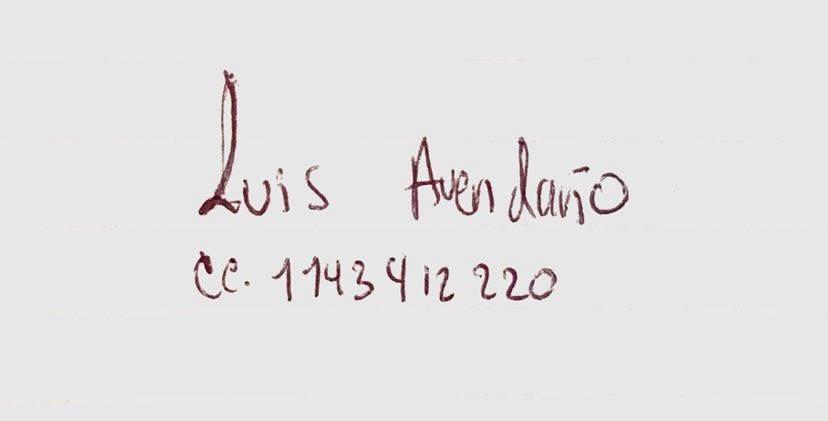 Luis Avendaño
CC. 1143412220